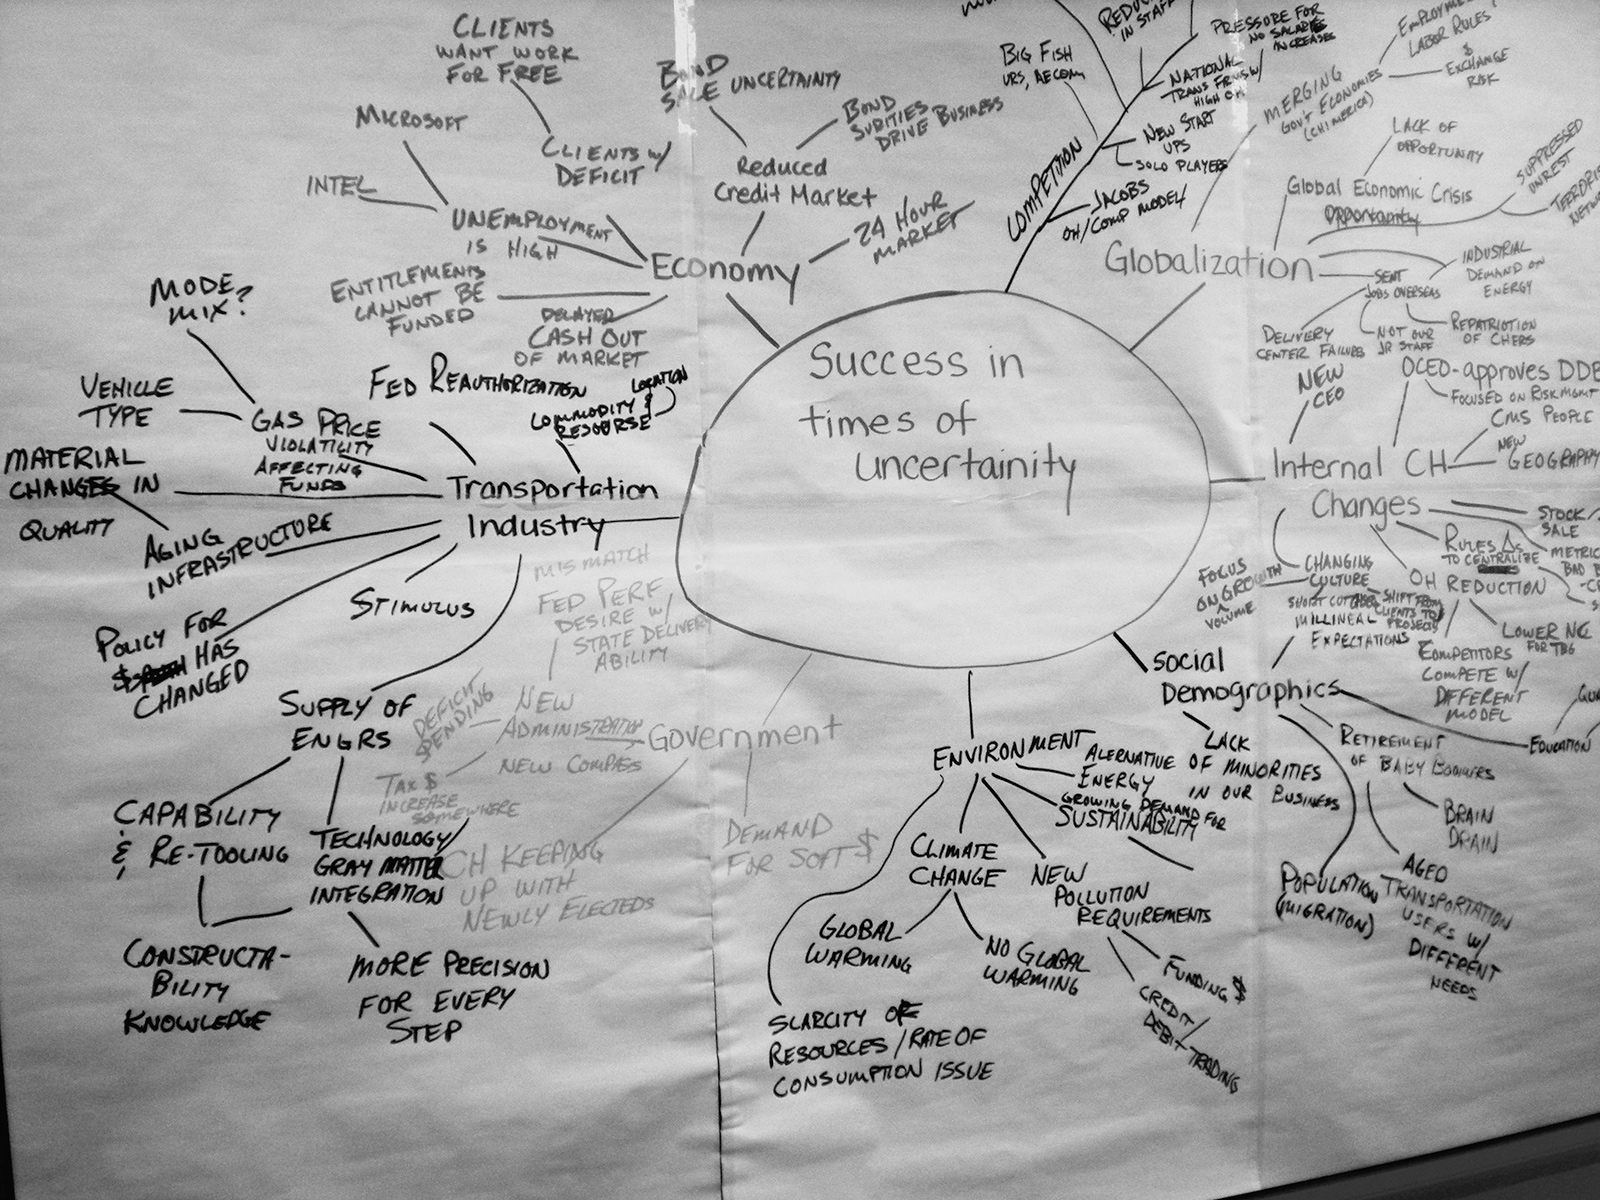 Success in
times of
uncertainity
Economy
CLIENTS
WANT WORK
FOR FREE
CLIENTS W/
DEFICIT
MICROSOFT
INTEL
UNEMPLOYMENT
IS HIGH
ENTITLEMENTS
CANNOT BE
FUNDED
DELAYED
CASH OUT
OF MARKET
BOND
SALE UNCERTAINTY
BOND
SURITIES
DRIVE BUSINESS
Reduced
Credit Market
24 HOUR
MARKET
COMPETITION
BIG FISH
URS, AECOM
IN STAFF
PRESSURE FOR
NO SALARIES
INCREASES
NATIONAL
TRANS FIRMS W/
HIGH OH
NEW START
UPS
SOLO PLAYERS
JACOBS
OH/COMP MODEL
Globalization
MERGING
GOV'T ECONOMIES
(CHIMERICA)
LABOR RULES
&
EXCHANGE
RISK
LACK OF
OPPORTUNITY
Global Economic Crisis
Opportunity
SUPPRESSED
UNREST
INDUSTRIAL
DEMAND ON
ENERGY
SENT
JOBS OVERSEAS
DELIVERY
CENTER FAILURES
NOT OUR
JR STAFF
REPATRIOTION
OF CHERS
Internal CH
Changes
NEW
CEO
OCED-approves DDB
FOCUSED ON RISK MGMT
CMS PEOPLE
NEW
GEOGRAPHY
STOCK
SALE
RULES Δs
TO CENTRALIZE
OH REDUCTION
LOWER NC
FOR TBG
COMPETITORS
COMPETE W/
DIFFERENT
MODEL
CHANGING
CULTURE
FOCUS
ON GROWTH
VOLUME
SHIFT FROM
CLIENTS TO
PROJECTS
MILLINEAL
EXPECTATIONS
Social
Demographics
LACK
OF MINORITIES
IN OUR BUSINESS
RETIREMENT
OF BABY BOOMERS
BRAIN
DRAIN
AGED
TRANSPORTATION
USERS W/
DIFFERENT
NEEDS
EDUCATION
POPULATION
(MIGRATION)
ENVIRONMENT
ALERNATIVE
ENERGY
GROWING DEMAND FOR
SUSTAINABILITY
CLIMATE
CHANGE
GLOBAL
WARMING
NO GLOBAL
WARMING
NEW
POLLUTION
REQUIREMENTS
FUNDING $
CREDIT/
DEBIT TRADING
SCARCITY OF
RESOURCES/RATE OF
CONSUMPTION ISSUE
Government
DEMAND
FOR SOFT $
CH KEEPING
UP WITH
NEWLY ELECTEDS
NEW
ADMINISTRATION
NEW COMPÆS
MISMATCH
FED PERF
DESIRE W/
STATE DELIVERY
ABILITY
DEFICIT
SPENDING
TAX $
INCREASE
SOMEWHERE
Transportation
Industry
MODE
MIX?
VEHICLE
TYPE
GAS PRICE
VIOLATILITY
AFFECTING
FUNDS
FED REAUTHORIZATION
COMMODITY &
RESOURSE
LOCATION
MATERIAL
CHANGES IN
QUALITY
AGING
INFRASTRUCTURE
POLICY FOR
$ HAS
CHANGED
STIMULUS
SUPPLY OF
ENGRS
CAPABILITY
& RE-TOOLING
TECHNOLOGY/
GRAY MATTER
INTEGRATION
CONSTRUCTA-
BILITY
KNOWLEDGE
MORE PRECISION
FOR EVERY
STEP